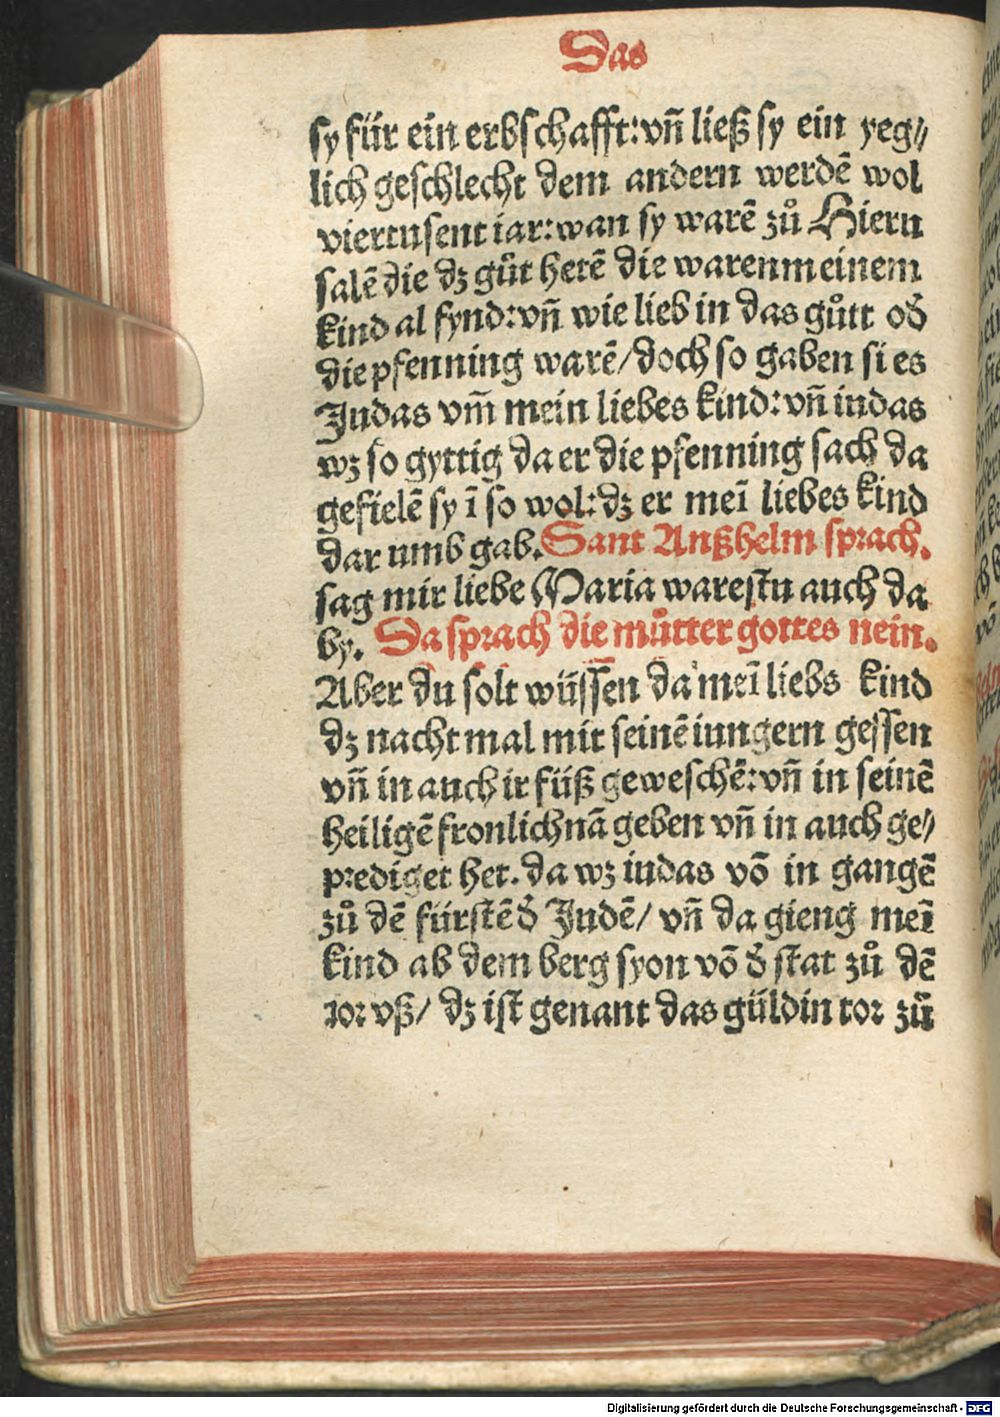 Das
sy für ein erbschafft:vn̄ ließ sy ein yeg⸗
lich geschlecht dem andern werdē wol
viertusent iar:wan sy warē zů Hieru
salē die dz gůt hetē die waren meinem
kind al fynd:vn̄ wie lieb in das gůtt od̓
die pfenning warē/doch so gaben si es
Judas vm̄ mein liebes kind:vn̄ iudas
wz so gyttig da er die pfenning sach da
gefielē sy ī so wol:dz er meī liebes kind
dar umb gab. Sant Anßhelm sprach.
sag mir liebe Maria warestu auch da
by. Da sprach die můtter gottes nein.
Aber du solt wüssen da meī liebs kind
dz nachtmal mit seinē iungern gessen
vn̄ in auch ir füß geweschē:vn̄ in seinē
heiligē fronlichnā geben vn̄ in auch ge⸗
prediget het. da wz iudas vō in gangē
zů dē fürstē d̓ Judē/ vn̄ da gieng meī
kind ab dem berg syon vō d̓ stat zů dē
tor vß/ dz ist genant das güldin tor zů
Digitalisierung gefördert durch die Deutsche Forschungsgemeinschaft - DFG